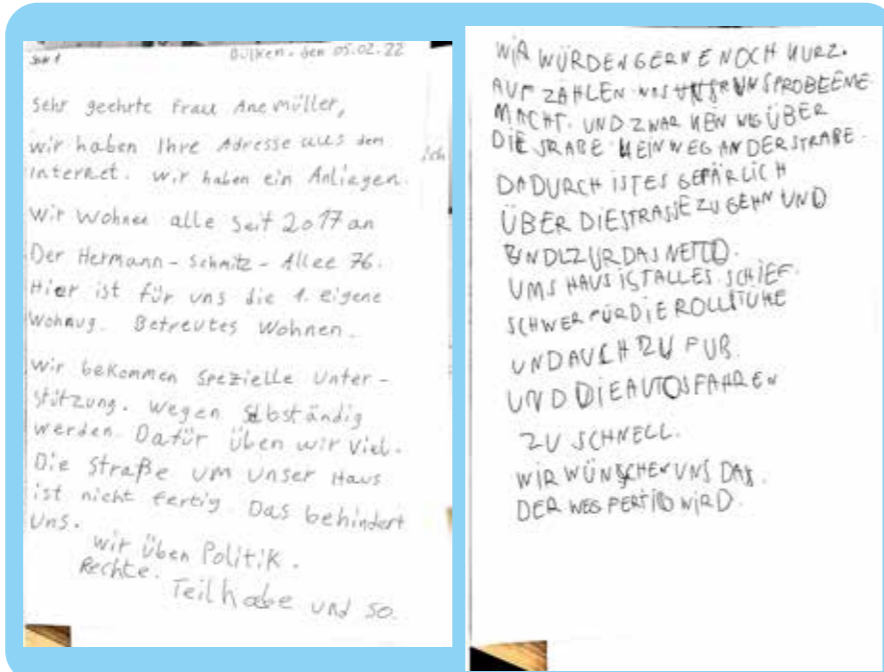 Seite 1
Bülken, den 05.02.22
Sehr geehrte Frau Anemüller,
wir haben Ihre Adresse aus dem
Internet. Wir haben ein Anliegen.
Wir wohnen alle seit 2017 an
Der Hermann-Schmitz-Allee 76.
Hier ist für uns die 1. eigene
Wohnug. Betreutes Wohnen.
Wir bekommen spezielle Unter-
stützung. Wegen selbständig
werden. Dafür üben wir viel.
Die Straße um unser Haus
ist nicht fertig. Das behindert
uns.
Wir üben Politik.
Rechte.
Teilhabe und so.
ich
WIR WÜRDEN GERNE NOCH KURZ.
AUF ZÄHLEN WAS UNS PROBLEEME
MACHT. UND ZWAR KEN WEG ÜBER
DIE SRAßE KEIN WEG AN DER STRAßE.
DADURCH IST ES GEFÄRLICH
ÜBER DIE STRASSE ZU GEHN UND
UND ZUR DAS NETTO.
UMS HAUS IST ALLES SCHIEF.
SCHWER FÜR DIE ROLLSTÜHE
UND AUCH ZU FUß.
UND DIE AUTOS FAHREN
ZU SCHNELL.
WIR WÜNSCHEN UNS DAS.
DER WEG FERTIG WIRD.